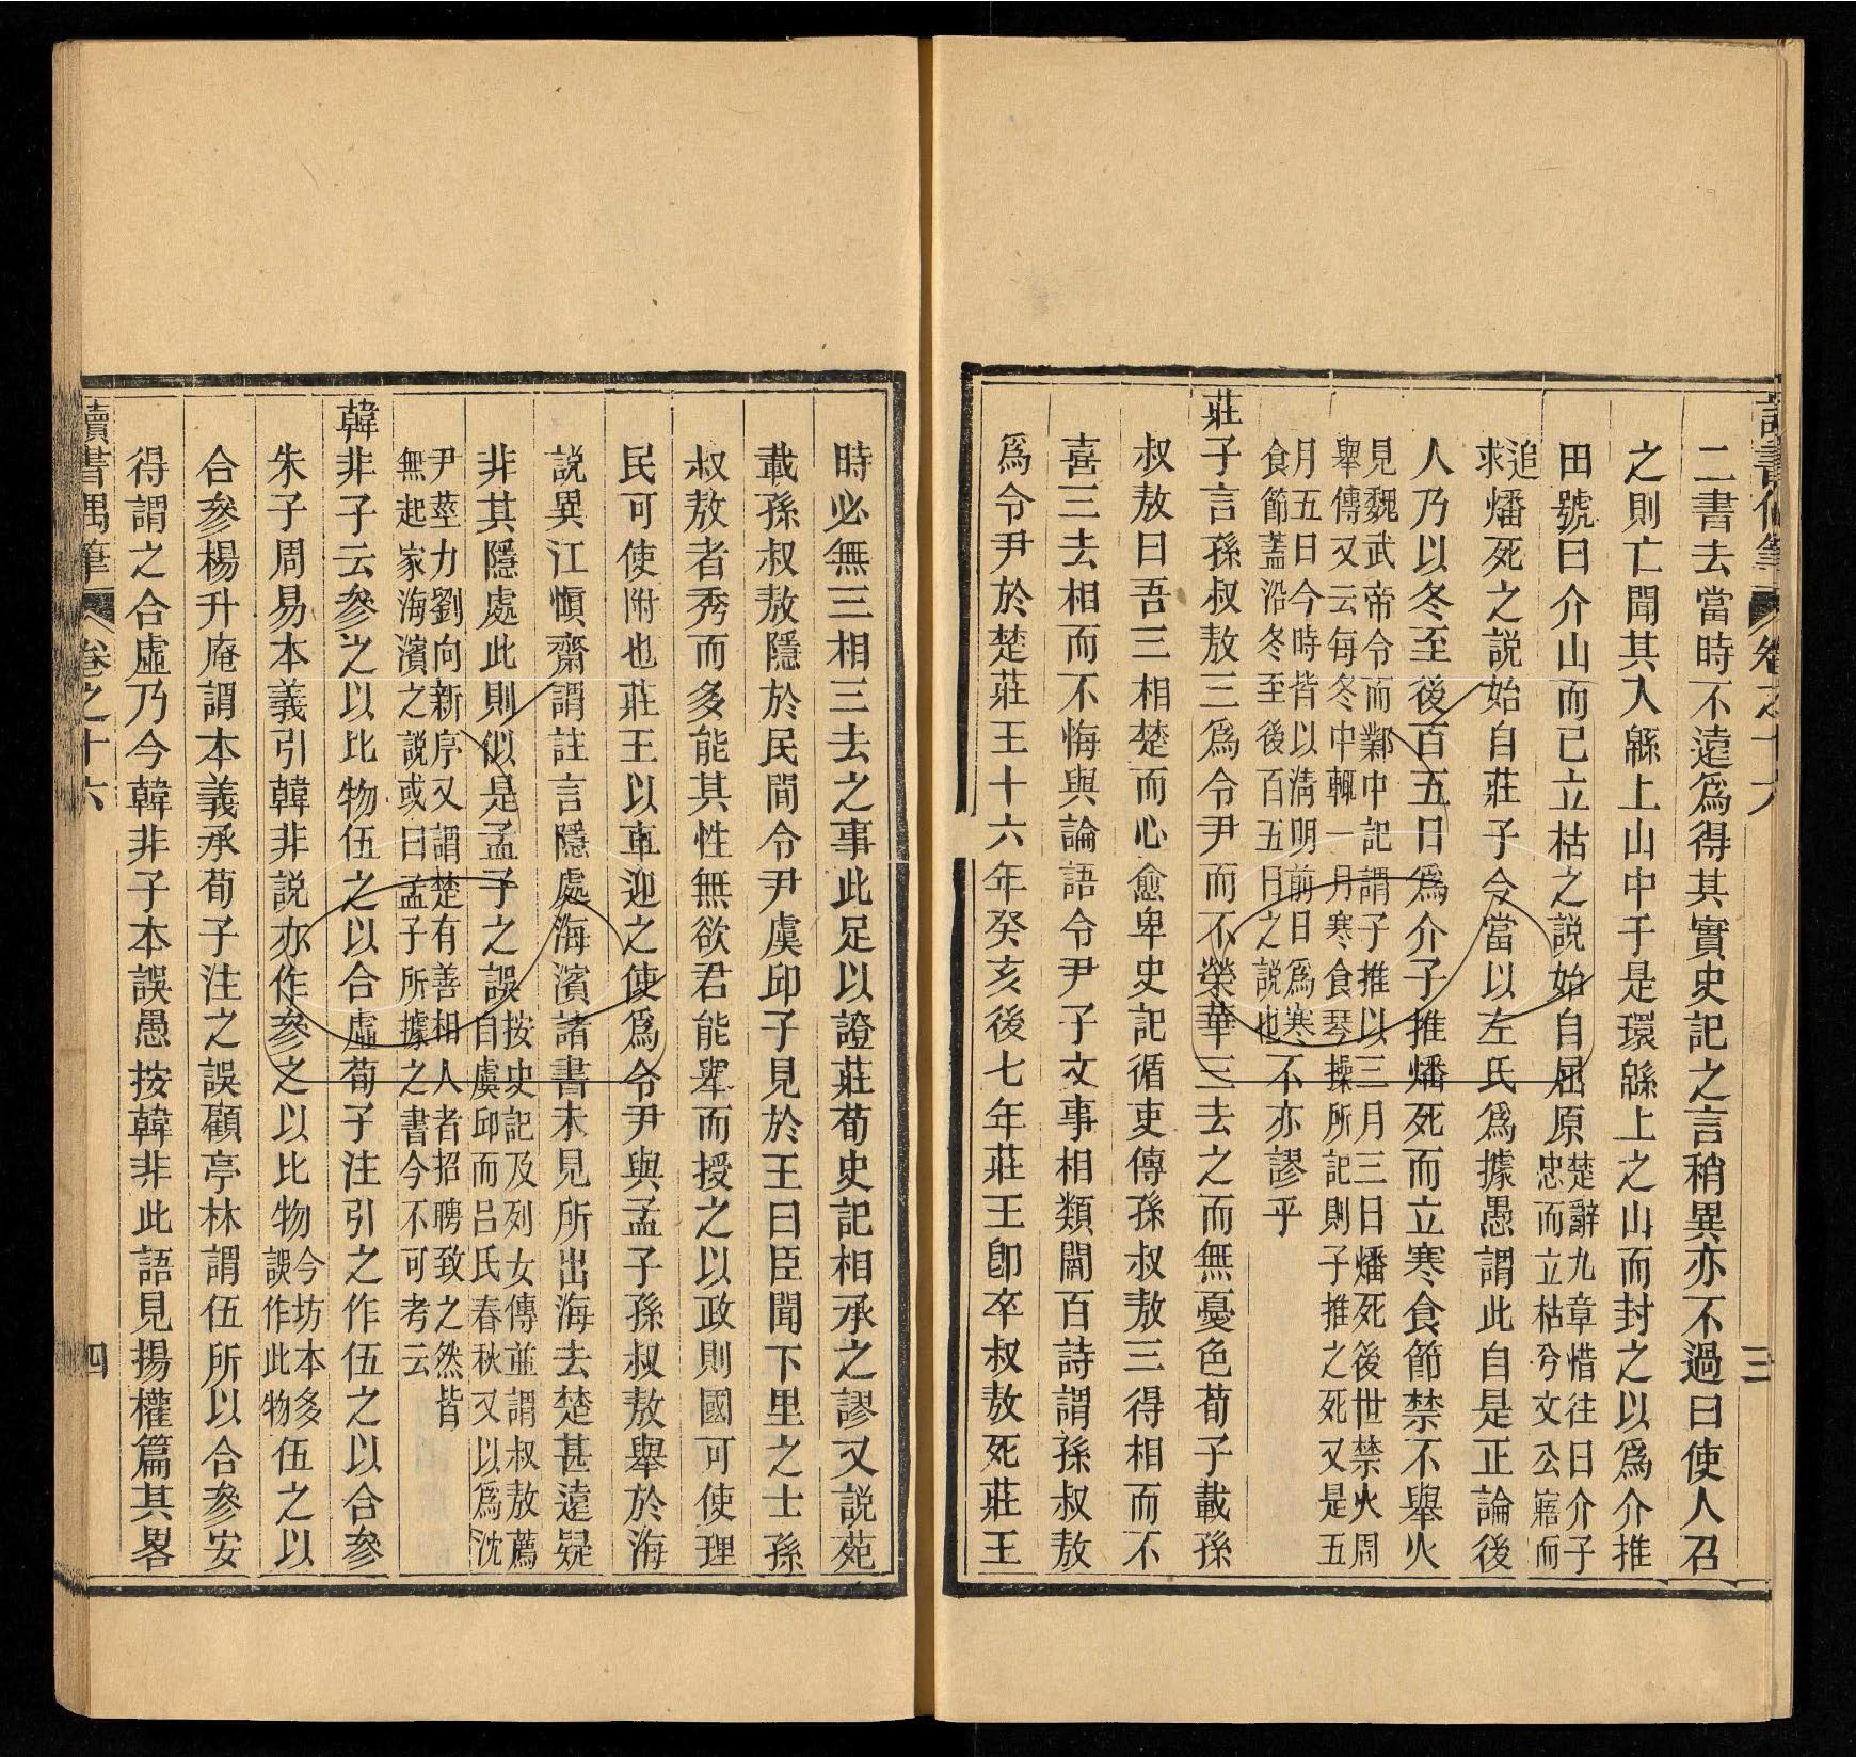 讀書偶筆 卷之十六 三
二書去當時不遠爲得其實史記之言稍異亦不過曰使人召
之則亡聞其入緜上山中于是環緜上之山而封之以爲介推
田號曰介山而已立枯之說始自屈原楚辭九章惜往日介子忠而立枯兮文公寤而
追求燔死之說始自莊子今當以左氏爲據愚謂此自是正論後
人乃以冬至後百五日爲介子推燔死而立寒食節禁不舉火
見魏武帝令而鄴中記謂子推以三月三日燔死後世禁火周
舉傳又云每冬中輒一月寒食琴操所記則子推之死又是五
月五日今時皆以淸明前日爲寒食節蓋沿冬至後百五日之說也不亦謬乎
莊子言孫叔敖三爲令尹而不榮華三去之而無憂色荀子載孫
叔敖曰吾三相楚而心愈卑史記循吏傳孫叔敖三得相而不
喜三去相而不悔與論語令尹子文事相類閻百詩謂孫叔敖
爲令尹於楚莊王十六年癸亥後七年莊王卽卒叔敖死莊王
時必無三相三去之事此足以證莊荀史記相承之謬又說苑
載孫叔敖隱於民間令尹虞邱子見於王曰臣聞下里之士孫
叔敖者秀而多能其性無欲君能舉而授之以政則國可使理
民可使附也莊王以車迎之使爲令尹與孟子孫叔敖舉於海
說異江愼齋謂註言隱處海濱諸書未見所出海去楚甚遠疑
非其隱處此則似是孟子之誤按史記及列女傳並謂叔敖薦自虞邱而呂氏春秋又以爲沈
尹莖力劉向新序又謂楚有善相人者招聘致之然皆
無起家海濱之說或曰孟子所據之書今不可考云
韓非子云參之以比物伍之以合虛荀子注引之作伍之以合參
朱子周易本義引韓非說亦作參之以比物今坊本多誤作此物伍之以
合參楊升庵謂本義承荀子注之誤顧亭林謂伍所以合參安
得謂之合虛乃今韓非子本誤愚按韓非此語見揚權篇其畧
讀書偶筆 卷之十六 四